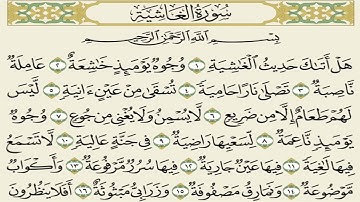 سُورَةُ الْغَاشِيَةِ
بِسْمِ اللَّهِ الرَّحْمَٰنِ الرَّحِيمِ
هَلْ أَتَىٰكَ حَدِيثُ الْغَٰشِيَةِ ١ وُجُوهٌ يَوْمَئِذٍ خَٰشِعَةٌ ٢ عَامِلَةٌ
نَّاصِبَةٌ ٣ تَصْلَىٰ نَارًا حَامِيَةً ٤ تُسْقَىٰ مِنْ عَيْنٍ ءَانِيَةٍ ٥ لَّيْسَ
لَهُمْ طَعَامٌ إِلَّا مِن ضَرِيعٍ ٦ لَّا يُسْمِنُ وَلَا يُغْنِي مِن جُوعٍ ٧ وُجُوهٌ
يَوْمَئِذٍ نَّاعِمَةٌ ٨ لِّسَعْيِهَا رَاضِيَةٌ ٩ فِي جَنَّةٍ عَالِيَةٍ ١٠ لَّا تَسْمَعُ
فِيهَا لَٰغِيَةً ١١ فِيهَا عَيْنٌ جَارِيَةٌ ١٢ فِيهَا سُرُرٌ مَّرْفُوعَةٌ ١٣ وَأَكْوَابٌ
مَّوْضُوعَةٌ ١٤ وَنَمَارِقُ مَصْفُوفَةٌ ١٥ وَزَرَابِيُّ مَبْثُوثَةٌ ١٦ أَفَلَا يَنظُرُونَ